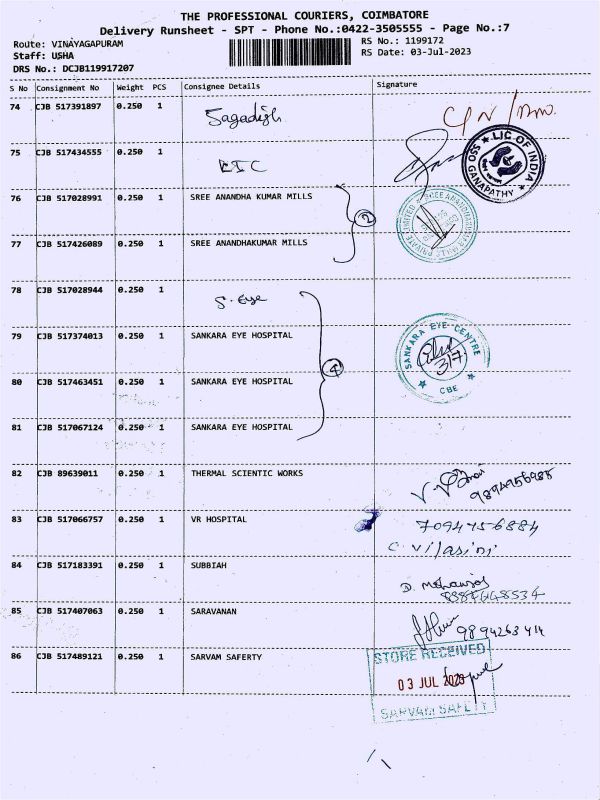 THE PROFESSIONAL COURIERS, COIMBATORE
Delivery Runsheet - SPT - Phone No.:0422-3505555 - Page No.:7
Route: VINAYAGAPURAM
RS No.: 1199172
Staff: USHA
RS Date: 03-Jul-2023
DRS No.: DCJB119917207
S No Consignment No Weight PCS Consignee Details Signature
74 CJB 517391897 0.250 1 Sagadish
75 CJB 517434555 0.250 1 LIC
LIC OF INDIA
SSO GANAPATHY
76 CJB 517028991 0.250 1 SREE ANANDHA KUMAR MILLS
2
77 CJB 517426089 0.250 1 SREE ANANDHAKUMAR MILLS
78 CJB 517028944 0.250 1 S. Eye
79 CJB 517374013 0.250 1 SANKARA EYE HOSPITAL
SANKARA EYE CENTRE
3/7
CBE
4
80 CJB 517463451 0.250 1 SANKARA EYE HOSPITAL
81 CJB 517067124 0.250 1 SANKARA EYE HOSPITAL
82 CJB 89639011 0.250 1 THERMAL SCIENTIC WORKS
9894956985
83 CJB 517066757 0.250 1 VR HOSPITAL
7094756884
C. Vilasini
84 CJB 517183391 0.250 1 SUBBIAH
85 CJB 517407063 0.250 1 SARAVANAN
9894263414
86 CJB 517489121 0.250 1 SARVAM SAFERTY
STORE RECEIVED
03 JUL 2023
SARVAM SAFETY